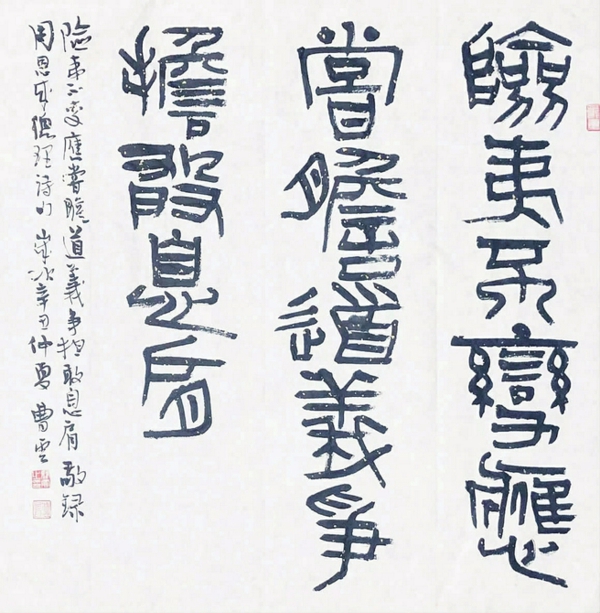 險夷不變應
嘗膽道義爭
擔敢息肩
險夷不变應嘗膽道義争担敢息肩 敬録
周恩来總理詩句 歲次辛丑仲夏 曹雲